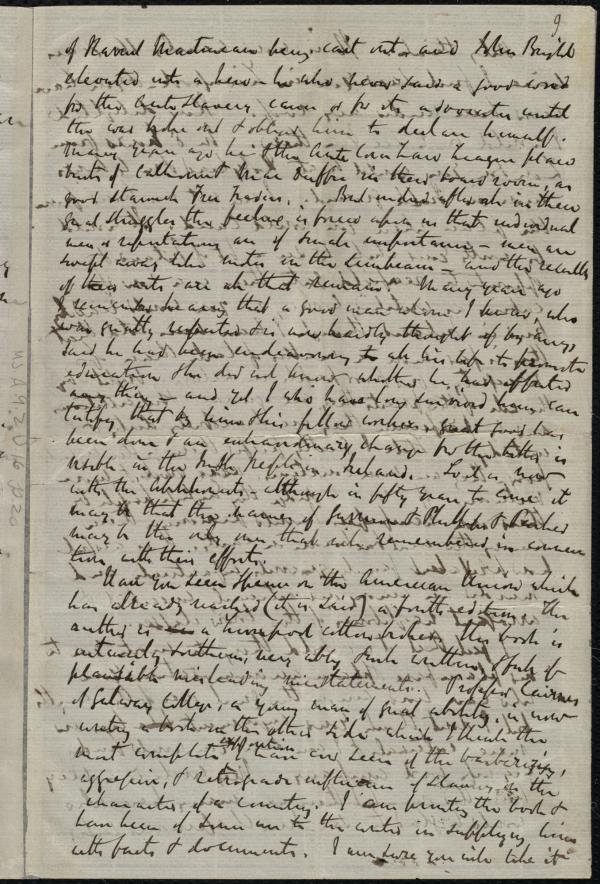 9
of Harriet Martineau being cast out and John Bright
elevated into a hero - he who never said a good word
for the Anti Slavery cause or for its advocates until
the war broke out & obliged him to declare himself.
Many years ago he & the Anti Corn Law League placed
busts of Calhoun & MacDuffie in their board room, as
good staunch Free Traders. But indeed after all in these
great struggles the feeling is forced upon us that individual
men & reputations are of small importance - men are
swept away like motes in the sunbeam - and the results
of their acts are all that remains. Many years ago
I remember hearing that a good man whom I knew, who
was greatly respected & is now hardly thought of, by any,
said he had been endeavouring all his life to promote
education & he did not know whether he had effected
any thing - and yet I who have long survived him can
testify that by him & his fellow workers great good has
been done & an extraordinary change for the better is
visible in the people in Ireland. So it is now
with the Abolitionists - although in fifty years to come it
may be that the names of Garrison & Phillips &
may be the only ones that will be remembered in connec
tion with their efforts.
Have you seen Spence on the American Union which
has already reached (it is said) a fourth edition. The
author is a Liverpool cotton broker. The book is
intensely Southern, very ably written & full of
plausible misleading misstatements. Professor Cairnes
of Galway College, a young man of great ability, is now
writing a book on the other side which I think the
most complete exposition I have ever seen of the barbarizing,
aggressive, & retrograde influence of slavery on the
character of a country. I am printing the book &
have been of some use to the writer in supplying him
with facts & documents. I am sure you will take it